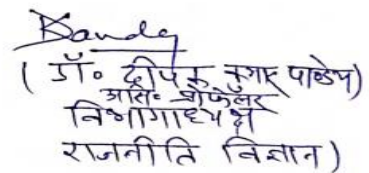 ( डॉ० दीपक कुमार पाण्डेय)
असि० प्रोफेसर
विभागाध्यक्ष
राजनीति विज्ञान)